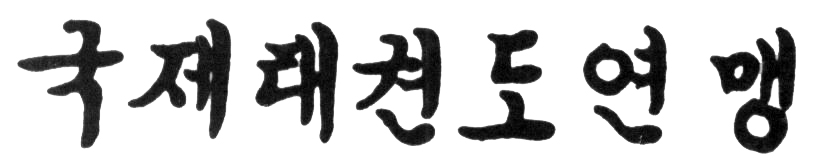 국제태권도연맹